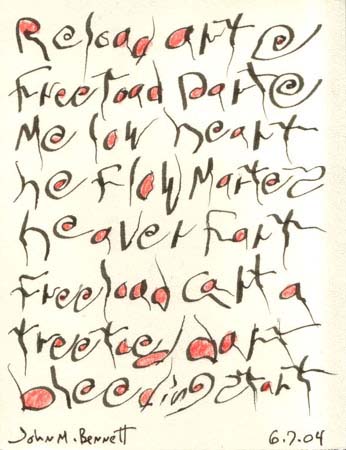 Reload art e
Freeload Dart e
Me low heart
he Flow Martes
heaver Fart
Freeload cart a
treetied dart
bheeding start
John M. Bennett 6.7.04